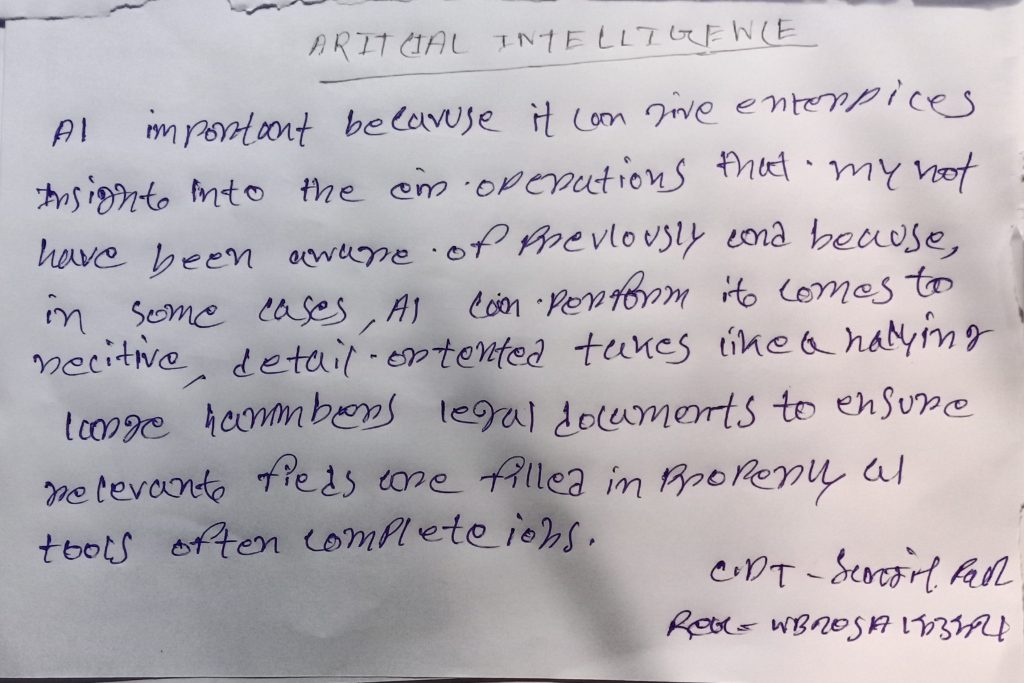 ARITCIAL INTELLIGENCE
AI important becavuse it can give enterpices
Insights into the eir operations that my not
have been aware of previously and becuose,
in some cases, AI can perform its comes to
recitive, detail-ortented takes like a nalying
large hammbers legal documents to ensure
relevants fieds are filled in properly al
tools often complete iobs.
CDT -